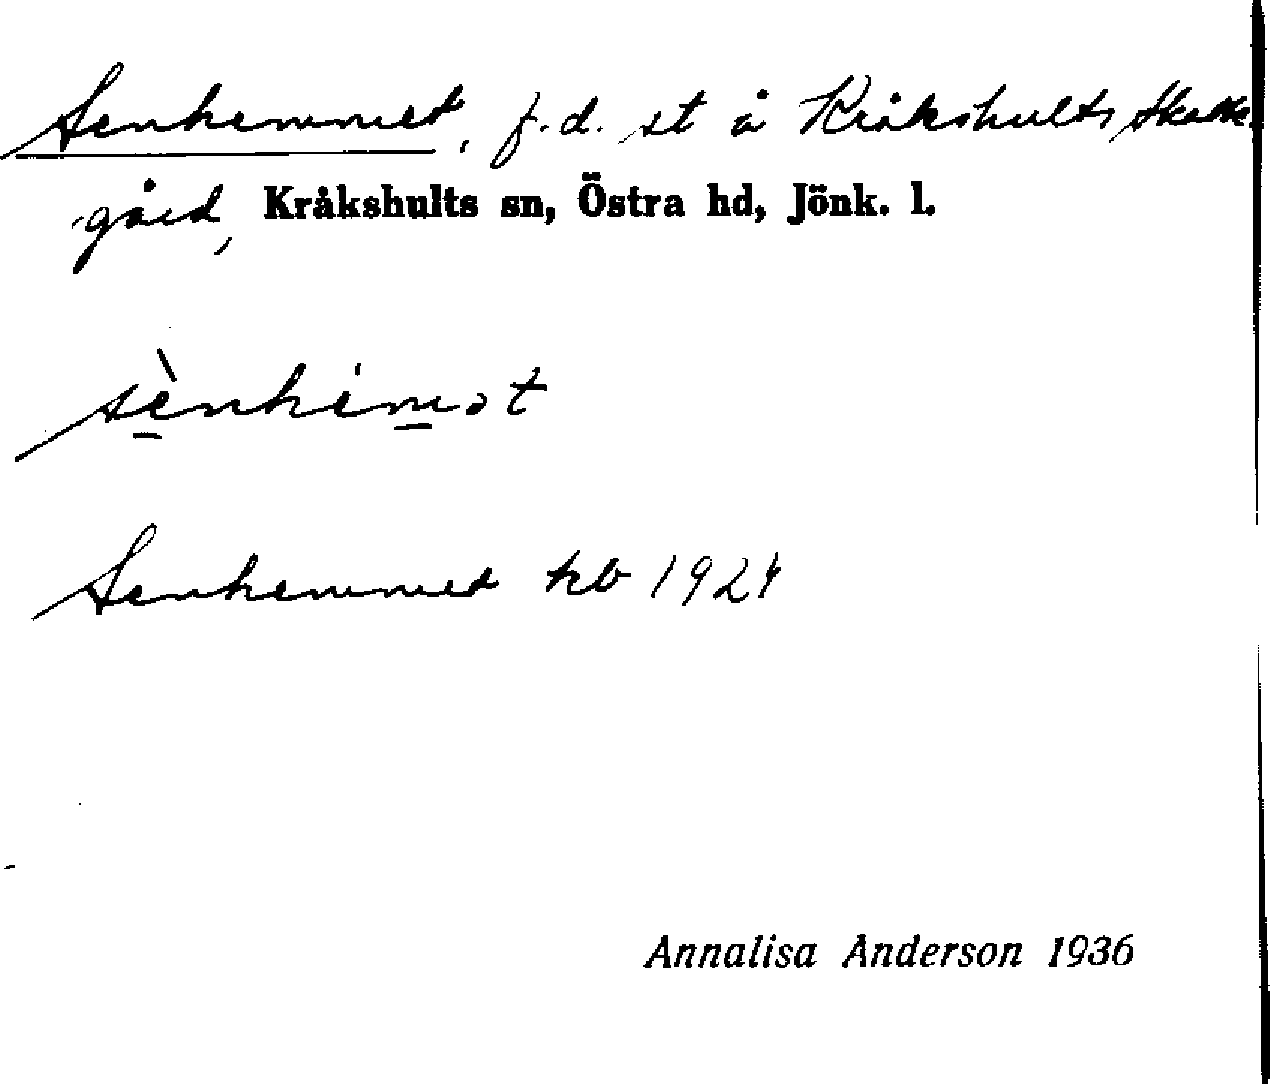 Senhemmet, f.d. st å Kråkshults Skatte-
gård, Kråkshults sn, Östra hd, Jönk. l.
sènhemət
Senhemmet kb 1924
Annalisa Anderson 1936